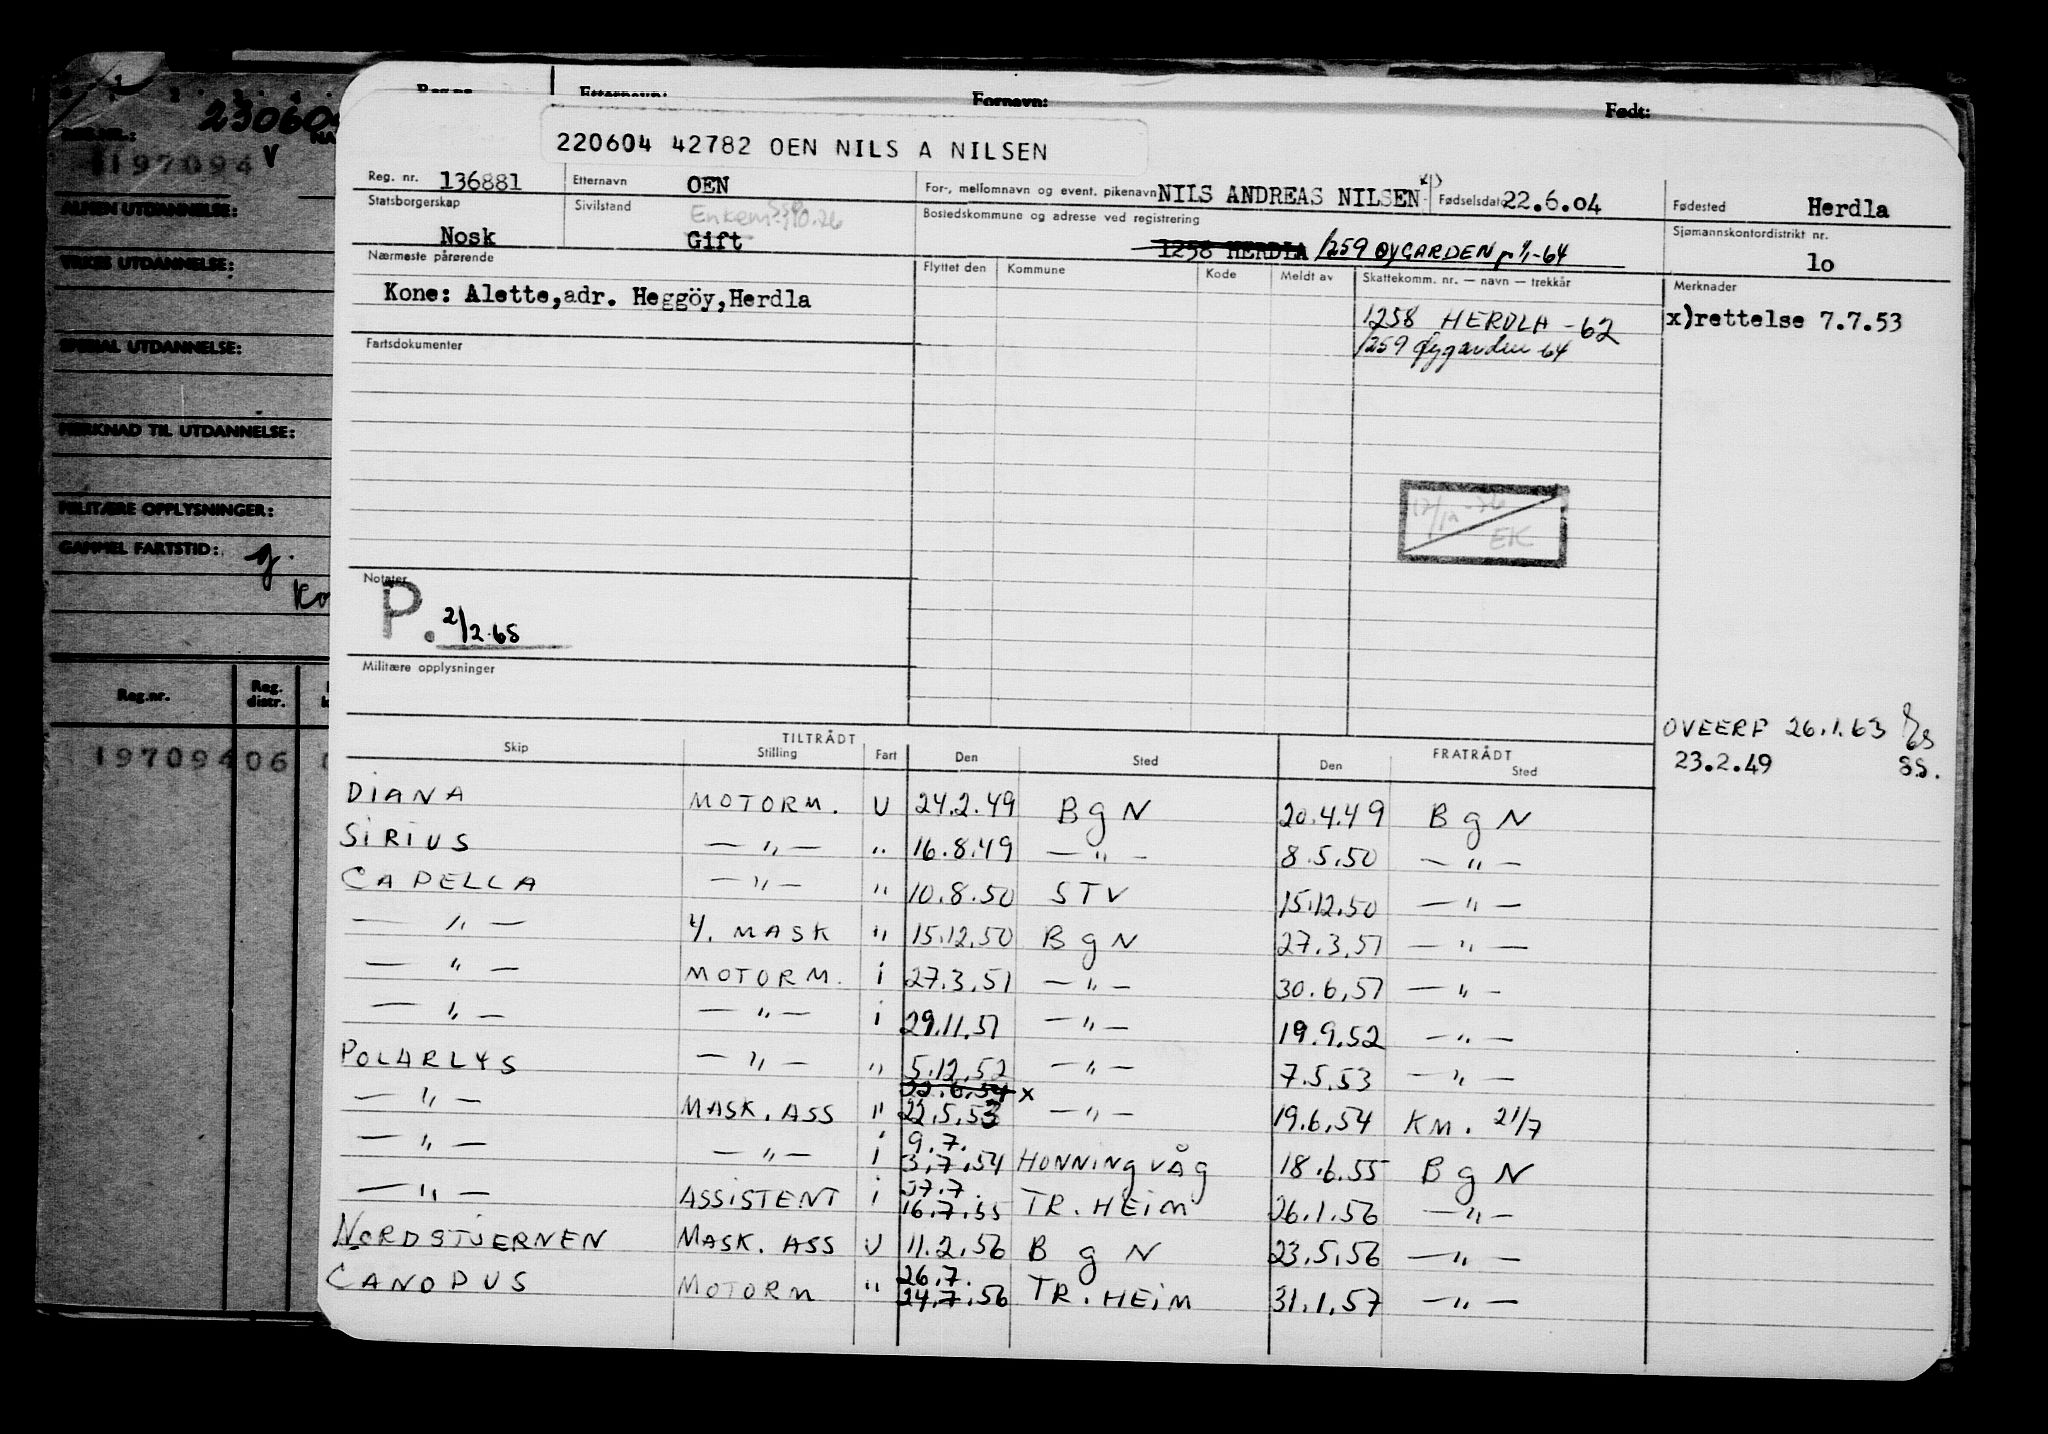 Reg.nr. Etternavn: Fornavn: Født:
220604 42782 OEN NILS A NILSEN
Reg. nr. 136881 Etternavn OEN For-, mellomnavn og event. pikenavn NILS ANDREAS NILSEN x) Fødselsdato 22.6.04 Fødested Herdla
Statsborgerskap Nosk Sivilstand Gift Bostedskommune og adresse ved registrering 1258 HERDLA 1259 ØYGARDEN Sjømannskontordistrikt nr. 10
Nærmeste pårørende Flyttet den Kommune Kode Meldt av Skattekomm. nr. — navn — trekkår Merknader
Kone: Alette,adr. Heggöy,Herdla
1258 HERDLA -62 x)rettelse 7.7.53
1259 Øygarden 64
Fartsdokumenter
EK
Notater
P. 2/2.65
Militære opplysninger
OVERF 26.1.63
23.2.49 SS.
TILTRÅDT FRATRÅDT
Skip Stilling Fart Den Sted Den Sted
DIANA MOTORM. U 24.2.49 BgN 20.4.49 BgN
SIRIUS —„— „ 16.8.49 —„— 8.5.50 —„—
CAPELLA —„— „ 10.8.50 STV 15.12.50 —„—
—„— 4. MASK „ 15.12.50 BgN 27.3.51 —„—
—„— MOTORM. i 27.3.51 —„— 30.6.51 —„—
—„— —„— i 29.11.51 —„— 19.9.52 —„—
POLARLYS —„— „ 5.12.52 —„— 7.5.53 —„—
22.6.54 x
—„— MASK. ASS „ 22.5.53 —„— 19.6.54 KM. 21/7
9.7.
—„— —„— i 3.7.54 HONNINGVÅG 18.6.55 BgN
—„— ASSISTENT i 16.7.55 TR.HEIM 26.1.56 —„—
NORDSTJERNEN MASK. ASS U 11.2.56 BgN 23.5.56 —„—
26.7.
CANOPUS MOTORM „ 24.7.56 TR.HEIM 31.1.57 —„—
230604
197094 V
ALMEN UTDANNELSE:
YRKES UTDANNELSE:
SPESIAL UTDANNELSE:
MERKNAD TIL UTDANNELSE:
MILITÆRE OPPLYSNINGER:
GAMMEL FARTSTID: g.
Reg.nr. Reg. distr.
197094 06